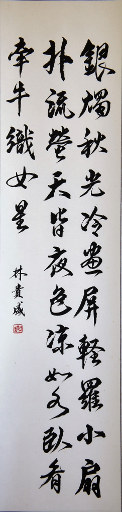 銀燭秋光冷畫屏軽羅小扇
扑流螢天皆夜色涼如水臥看
牽牛織女星
林貴